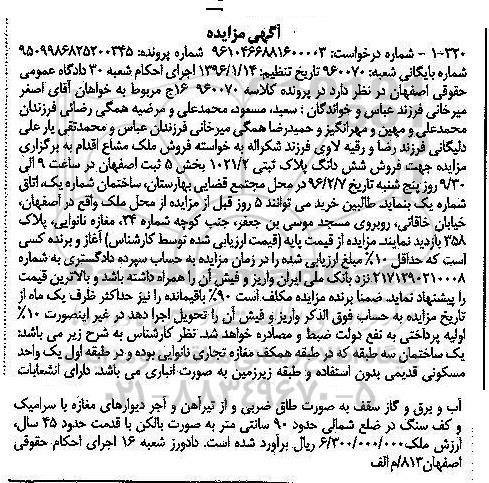 آگهی مزایده
۱-۳۲۰ - شماره درخواست: ۹۶۱۰۴۶۶۸۸۱۶۰۰۰۰۳ شماره پرونده: ۹۵۰۹۹۸۶۸۲۵۲۰۰۳۴۵
شماره بایگانی شعبه: ۹۶۰۰۷۰ تاریخ تنظیم: ۱۳۹۶/۱/۱۴ اجرای احکام شعبه ۳۰ دادگاه عمومی
حقوقی اصفهان در نظر دارد در پرونده کلاسه ۹۶۰۰۷۰ ج۱۶ مربوط به خواهان آقای اصغر
میرخانی فرزند عباس و خواندگان: سعید، مسعود، محمدعلی و مرضیه همگی رضائی فرزندان
محمدعلی و مهین و مهرانگیز و حمیدرضا همگی میرخانی فرزندان عباس و محمدتقی یار علی
دلیگانی فرزند رضا و رقیه لاوی فرزند شکراله به خواسته فروش ملک مشاع اقدام به برگزاری
مزایده جهت فروش شش دانگ پلاک ثبتی ۱۰۲۱/۲ بخش ۵ ثبت اصفهان در ساعت ۹ الی
۹/۳۰ روز پنج شنبه تاریخ ۹۶/۲/۷ در محل مجتمع قضایی بهارستان، ساختمان شماره یک، اتاق
شماره یک بنماید. طالبین خرید می توانند ۵ روز قبل از مزایده از محل ملک واقع در اصفهان،
خیابان خاقانی، روبروی مسجد موسی بن جعفر، جنب کوچه شماره ۳۴، مغازه نانوایی، پلاک
۳۵۸ بازدید نمایند مزایده از قیمت پایه (قیمت ارزیابی شده توسط کارشناس) آغاز و برنده کسی
است که حداقل ۱۰٪ مبلغ ارزیابی شده را در زمان مزایده به حساب سپرده دادگستری به شماره
۲۱۷۱۳۹۰۲۱۰۰۰۸ نزد بانک ملی ایران واریز و فیش آن را همراه داشته باشد و بالاترین قیمت
را پیشنهاد نماید. ضمنا برنده مزایده مکلف است ۹۰٪ باقیمانده را نیز حداکثر ظرف یک ماه از
تاریخ مزایده به حساب فوق الذکر واریز و فیش آن را تحویل اجرا دهد در غیر اینصورت ۱۰٪
اولیه پرداختی به نفع دولت ضبط و مصادره خواهد شد. نظر کارشناس به شرح زیر می باشد:
یک ساختمان سه طبقه که در طبقه همکف مغازه تجاری نانوایی بوده و در طبقه اول یک واحد
مسکونی قدیمی بدون استفاده و طبقه زیرزمین به صورت انباری می باشد. دارای انشعابات
آب و برق و گاز سقف به صورت طاق ضربی و از تیرآهن و آجر دیوارهای مغازه با سرامیک
و کف سنگ در ضلع شمالی حدود ۹۰ سانتی متر به صورت بالکن با قدمت حدود ۴۵ سال،
ارزش ملک ۶/۳۰۰/۰۰۰/۰۰۰ ریال برآورد شده است. دادورز شعبه ۱۶ اجرای احکام حقوقی
اصفهان ۸۱۳/م الف